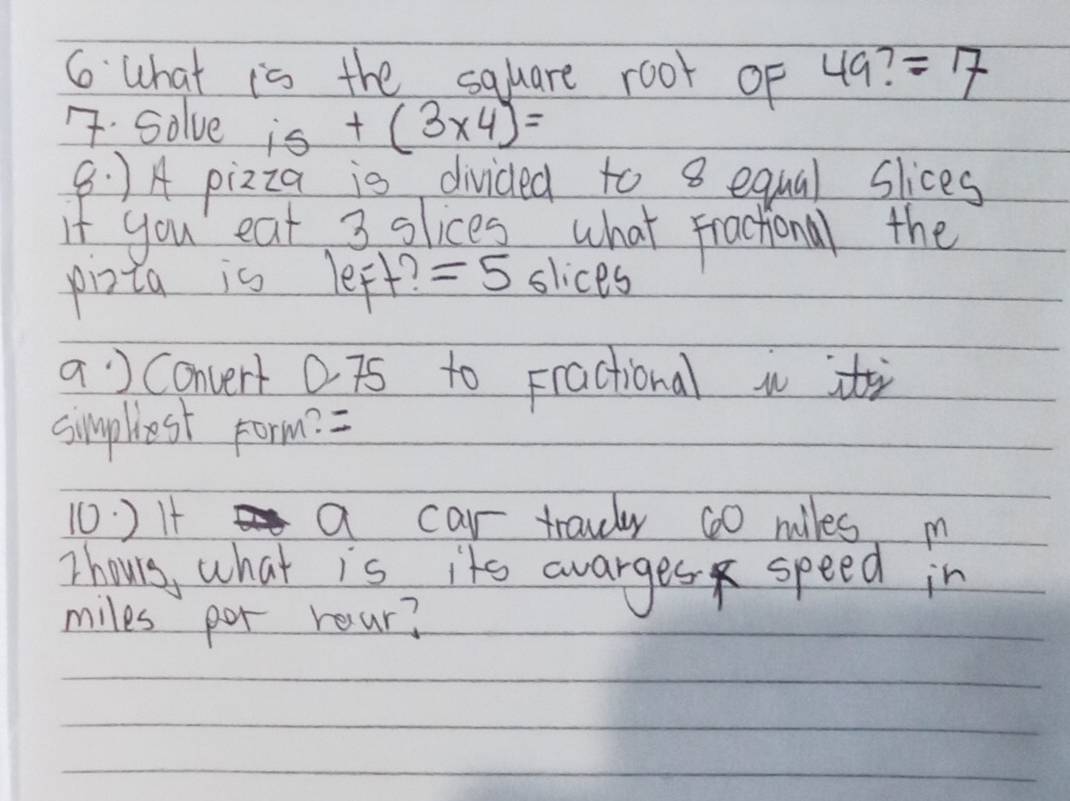 6. What is the square root OF 49? = 7
7. Solve is + (3x4) =
8.) A pizza is divided to 8 equal Slices
if you eat 3 slices what Fractional the
pizza is left? = 5 slices
9.) Convert 0.75 to Fractional in its
simpliest Form? =
10.) If a car travels 60 miles in
2hours, what is its avarges speed in
miles per hour?